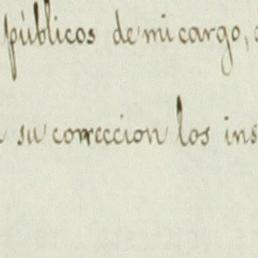 públicos de mi cargo,
su correccion los ins